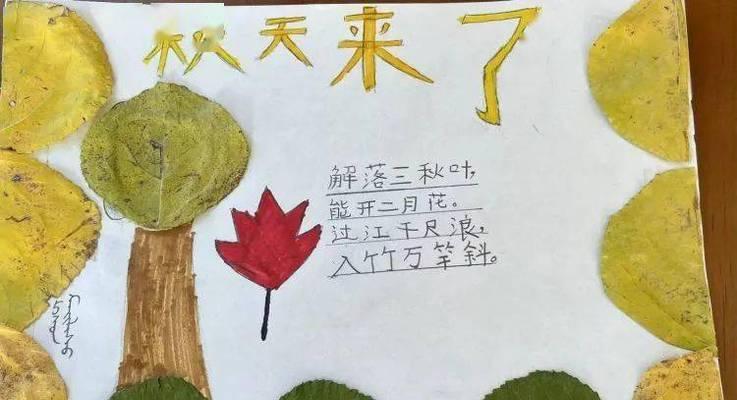 秋天来了
解落三秋叶,
能开二月花。
过江千尺浪,
入竹万竿斜。